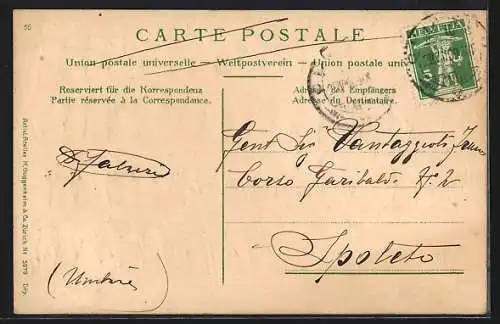 56
CARTE POSTALE
Union postale universelle — Weltpostverein — Union postale univ
Reserviert für die Korrespondenz
Partie réservée à la Correspondance.
Adresse des Empfängers
Adresse du Destinataire.
HELVETIA
5
Gent Sig Vantaggioti
Corso Garibaldi N. 2
Spoleto
(Umbria)
Artist. Atelier H. Guggenheim & Co. Zürich Nr. 5979 Dép.